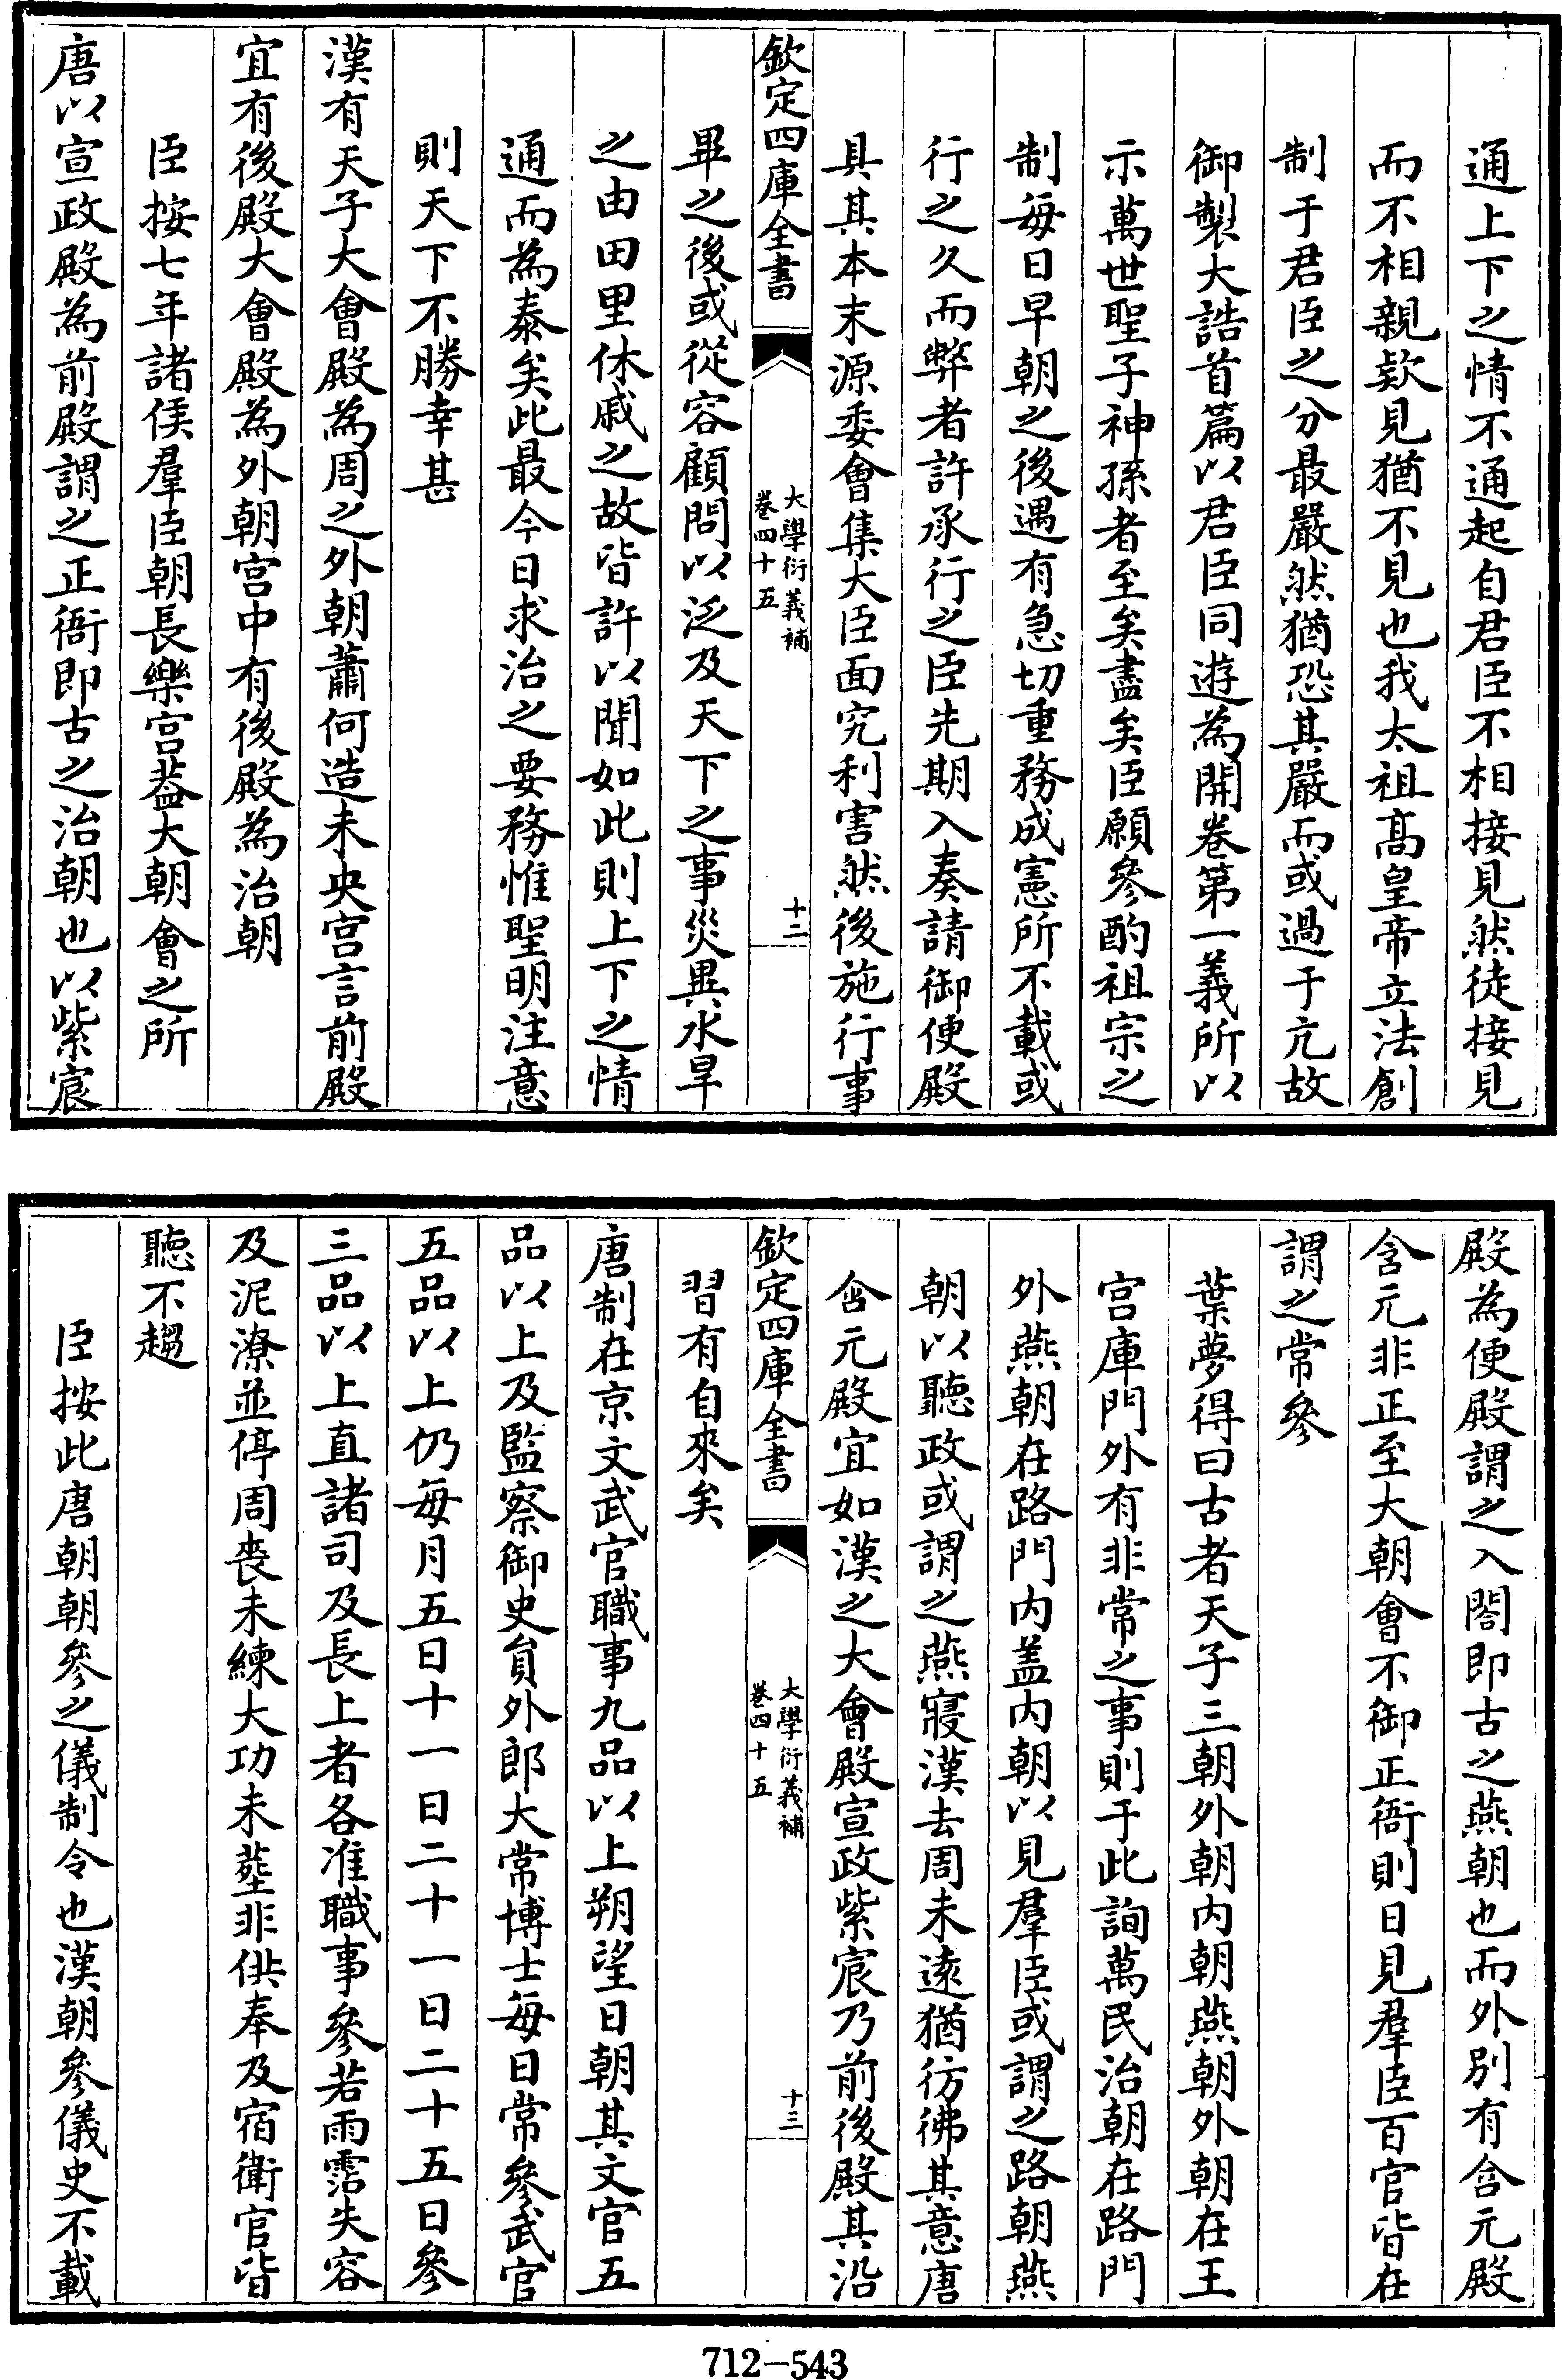 通上下之情不通起自君臣不相接見然徒接見
而不相親欵見猶不見也我太祖髙皇帝立法創
制于君臣之分最嚴然猶恐其嚴而或過于亢故
御製大誥首篇以君臣同遊為開卷第一義所以
示萬世聖子神孫者至矣盡矣臣願參酌祖宗之
制每日早朝之後遇有急切重務成憲所不載或
行之久而弊者許承行之臣先期入奏請御便殿
具其本末源委會集大臣面究利害然後施行事
欽定四庫全書
大學衍義補
卷四十五
十二
畢之後或從容顧問以泛及天下之事災異水旱
之由田里休戚之故皆許以聞如此則上下之情
通而為泰矣此最今日求治之要務惟聖明注意
則天下不勝幸甚
漢有天子大會殿為周之外朝蕭何造未央宫言前殿
宜有後殿大會殿為外朝宫中有後殿為治朝
臣按七年諸侯羣臣朝長樂宫葢大朝會之所
唐以宣政殿為前殿謂之正衙即古之治朝也以紫宸
殿為便殿謂之入閤即古之燕朝也而外别有含元殿
含元非正至大朝會不御正衙則日見羣臣百官皆在
謂之常參
葉夢得曰古者天子三朝外朝内朝燕朝外朝在王
宫庫門外有非常之事則于此詢萬民治朝在路門
外燕朝在路門内盖内朝以見羣臣或謂之路朝燕
朝以聽政或謂之燕寢漢去周未逺猶彷彿其意唐
含元殿宜如漢之大會殿宣政紫宸乃前後殿其沿
欽定四庫全書
大學衍義補
卷四十五
十三
習有自來矣
唐制在京文武官職事九品以上朔望日朝其文官五
品以上及監察御史員外郎大常博士每日常參武官
五品以上仍每月五日十一日二十一日二十五日參
三品以上直諸司及長上者各准職事參若雨霑失容
及泥潦並停周喪未練大功未塟非供奉及宿衛官皆
聽不趨
臣按此唐朝朝參之儀制令也漢朝參儀史不載
712-543